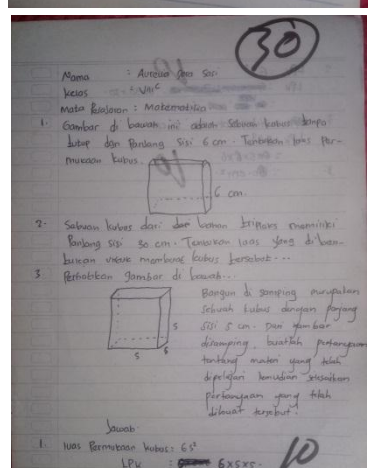 30
Nama : Aurelia
Kelas : VIII C
Mata Pelajaran : Matematika
1. Gambar di bawah ini adalah sebuah kubus tanpa
tutup dgn Panjang sisi 6 cm. Tentukan luas per-
mukaan kubus.
6 cm.
2. Sebuah kubus dari bahan triplaks memiliki
Panjang sisi 30 cm. Tentukan luas yang dibu-
tuhkan untuk membuat kubus tersebut...
3. Perhatikan gambar di bawah...
Bangun di samping merupakan
sebuah kubus dengan panjang
sisi 5 cm. Dari gambar
disamping, buatlah pertanyaan
tentang materi yang telah
dipelajari kemudian selesaikan
pertanyaan yang telah
dibuat tersebut!
5
5 5
Jawab
1. luas Permukaan kubus: 6s²
LPK : 6x5x5
10